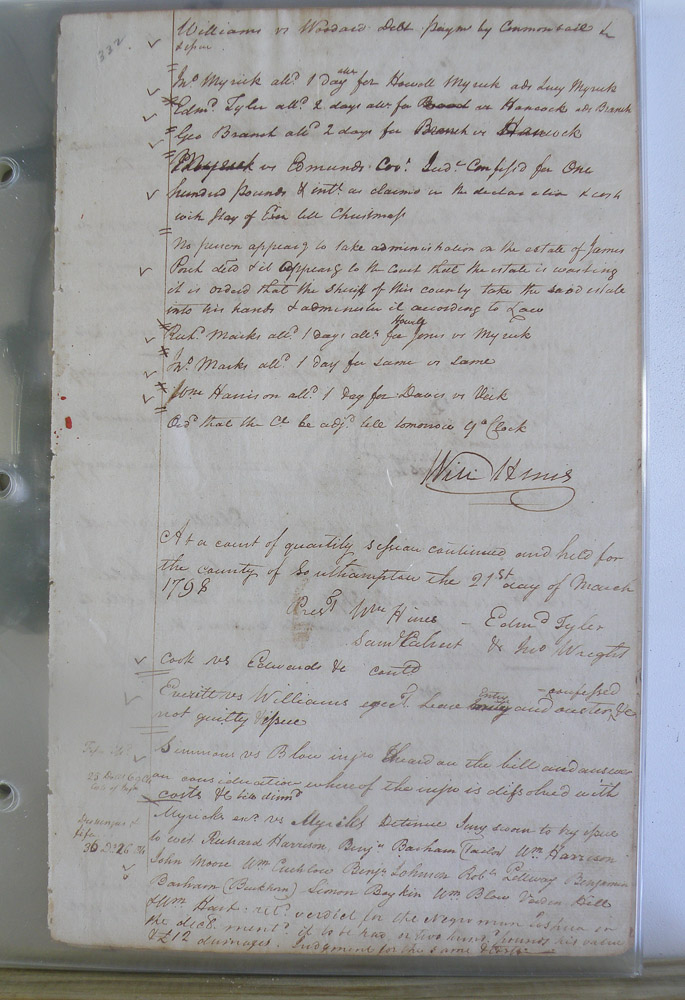 332
Williams vs Woodard Debt paymt by Common bail &
issue
Jno Myrick alld 1 day atte for Howell Myrick ads Lucy Myrick
Edmd Tyler alld 2 days atte for vs Hancock ads Branch
Geo Branch alld 2 days for Branch vs Hancock
Myrick vs Edmunds Covt Judgt Confess'd for One
hundred pounds & intt as claimed in the declaration & costs
with stay of Exn till Christmass
No person appearg to take administration on the estate of James
Pork decd & it appearg to the Court that the estate is wasting
it is ordered that the Sheriff of this county take the said estate
into his hands & administer it according to Law
Richd Marks alld 1 days atte for Howell Jones vs Myrick
Jno Marks alld 1 day for same vs same
Wm Harrison alld 1 day for Davis vs Vick
Ord that the Ct be adjd till tomorrow 9 o Clock
Will Hines
At a court of quarterly session continued and held for
the county of Southampton the 21st day of March
1798
Prest Wm Hines - Edmd Tyler
Saml Calvert & Jno Wright
Cook vs Edwards &c contd
Everitt vs Williams eject Lease Entry and ouster confessed &c
not guilty & issue
Simmons vs Blow injn Heard on the bill and answer
on consideration whereof the injn is dissolved with
costs & bill dismd
Myricks exr vs Myricks Detinue Jury sworn to try issue
to wit Richard Harrison Benjn Barham (Tailor) Wm Harrison
John Moore Wm Crichlow Benjn Johnson Robt Benjamin
Barham (Buckhorn) Simon Boykin Wm Blow Hill
& Wm Hart. retd verdict for the Negro man Joshua in
the decln mentd if to be had or two hundd pounds his value
& £12 damages. Judgment for the same & costs